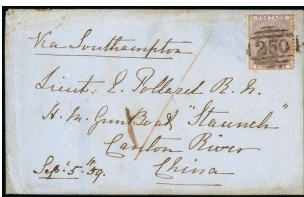 POSTAGE
250
Via Southampton
Lieut: E. Pollard R. N.
H. M. Gun Boat "Staunch"
Canton River
China
Sept. 5.th 59.